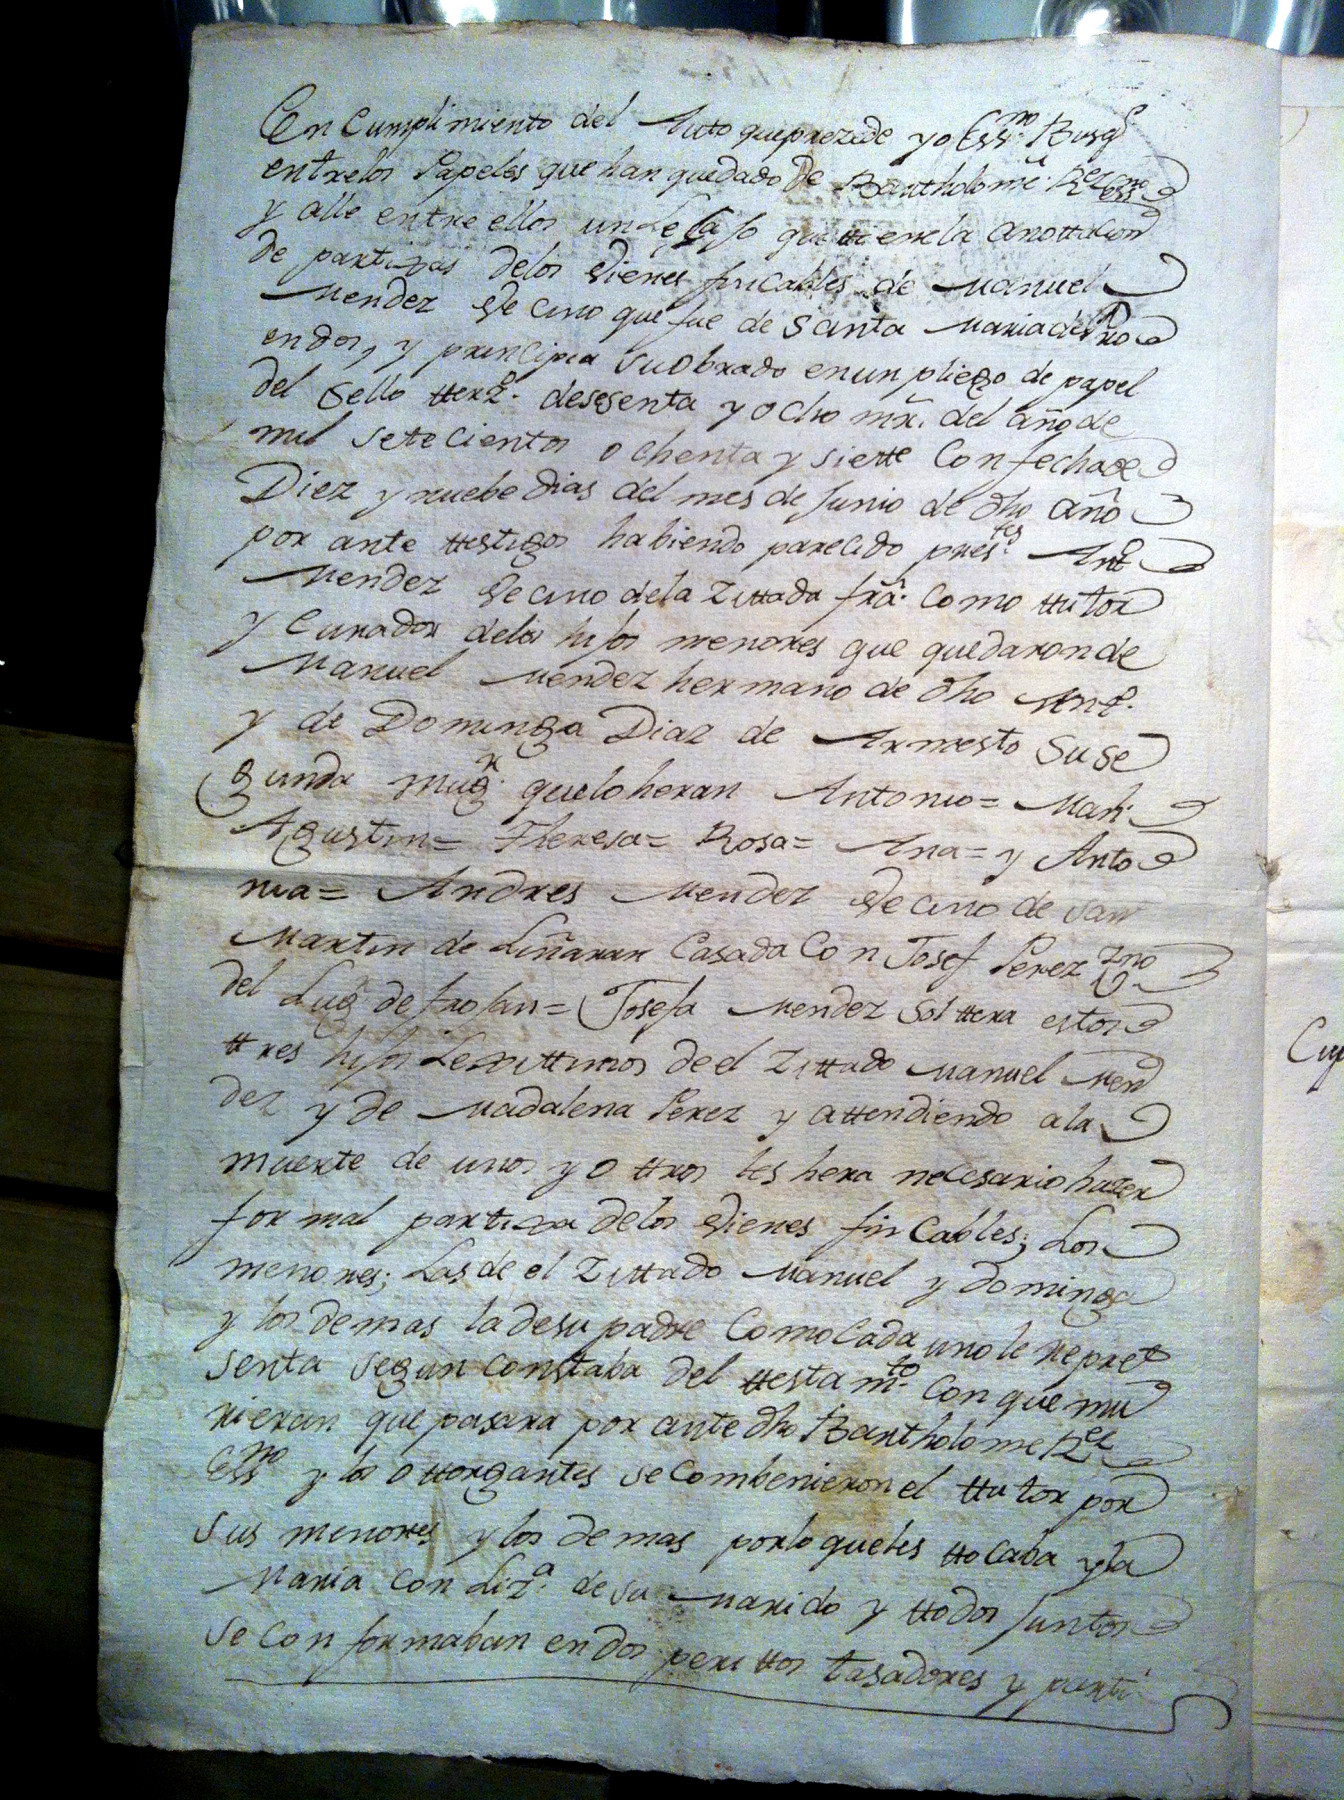 En Cumplimiento del Auto queprezede yo Essno. Busq
entrelos Papeles que han quedado de Bartholomé
y allé entre ellos un Legajo que ttiene la anottacion
de partijas delos vienes fincables de Manuel
Mendez Vecino que fue de Santa Maria de
endos, y principia suobrado en un pliego de papel
del Sello tterzo. desesenta y ocho mrs. del año de
mil sete cientos ochenta y siette Con fecha de
Diez y nuebe dias del mes de Junio de dho año
por ante ttestigos habiendo parecido prestes. Anto
Mendez Vecino dela Zittada frâ. Como ttutor
y Curador delos hijos menores que quedaron de
Manuel Mendez hermano de dho Anto.
y de Dominga Diaz de Armesto Su Se
gunda mugr. queloheran Antonio= Man.
Agustin= Theresa= Rosa= Ana= y Anto
nia= Andres Mendez Vecino de San
Martin de Liñaran Casada Con Josef Perez vno
del Lugr de frojan= Josefa Mendez Solttera estos
ttres hijos Lexittimos de el Zittado Manuel Men
dez y de Madalena Perez y attendiendo a la
muerte de unos y ottros les hera necesario hazer
formal partija delos vienes fincables; Los
menores; Las de el Zittado Manuel y Dominga
y los demas la desu padre Como Cada uno le repret
senta segun constaba del ttestamto. Con que mu
rieran que pasara por ante dho Bartholome Rez
Essno y los ottorgantes se Combenieron el ttutor por
Sus menores y los demas porlo queles ttocaba y la
Maria Con Liza. de su Marido y ttodos Juntos
se Con formaban en dos perittos tasadores y parti